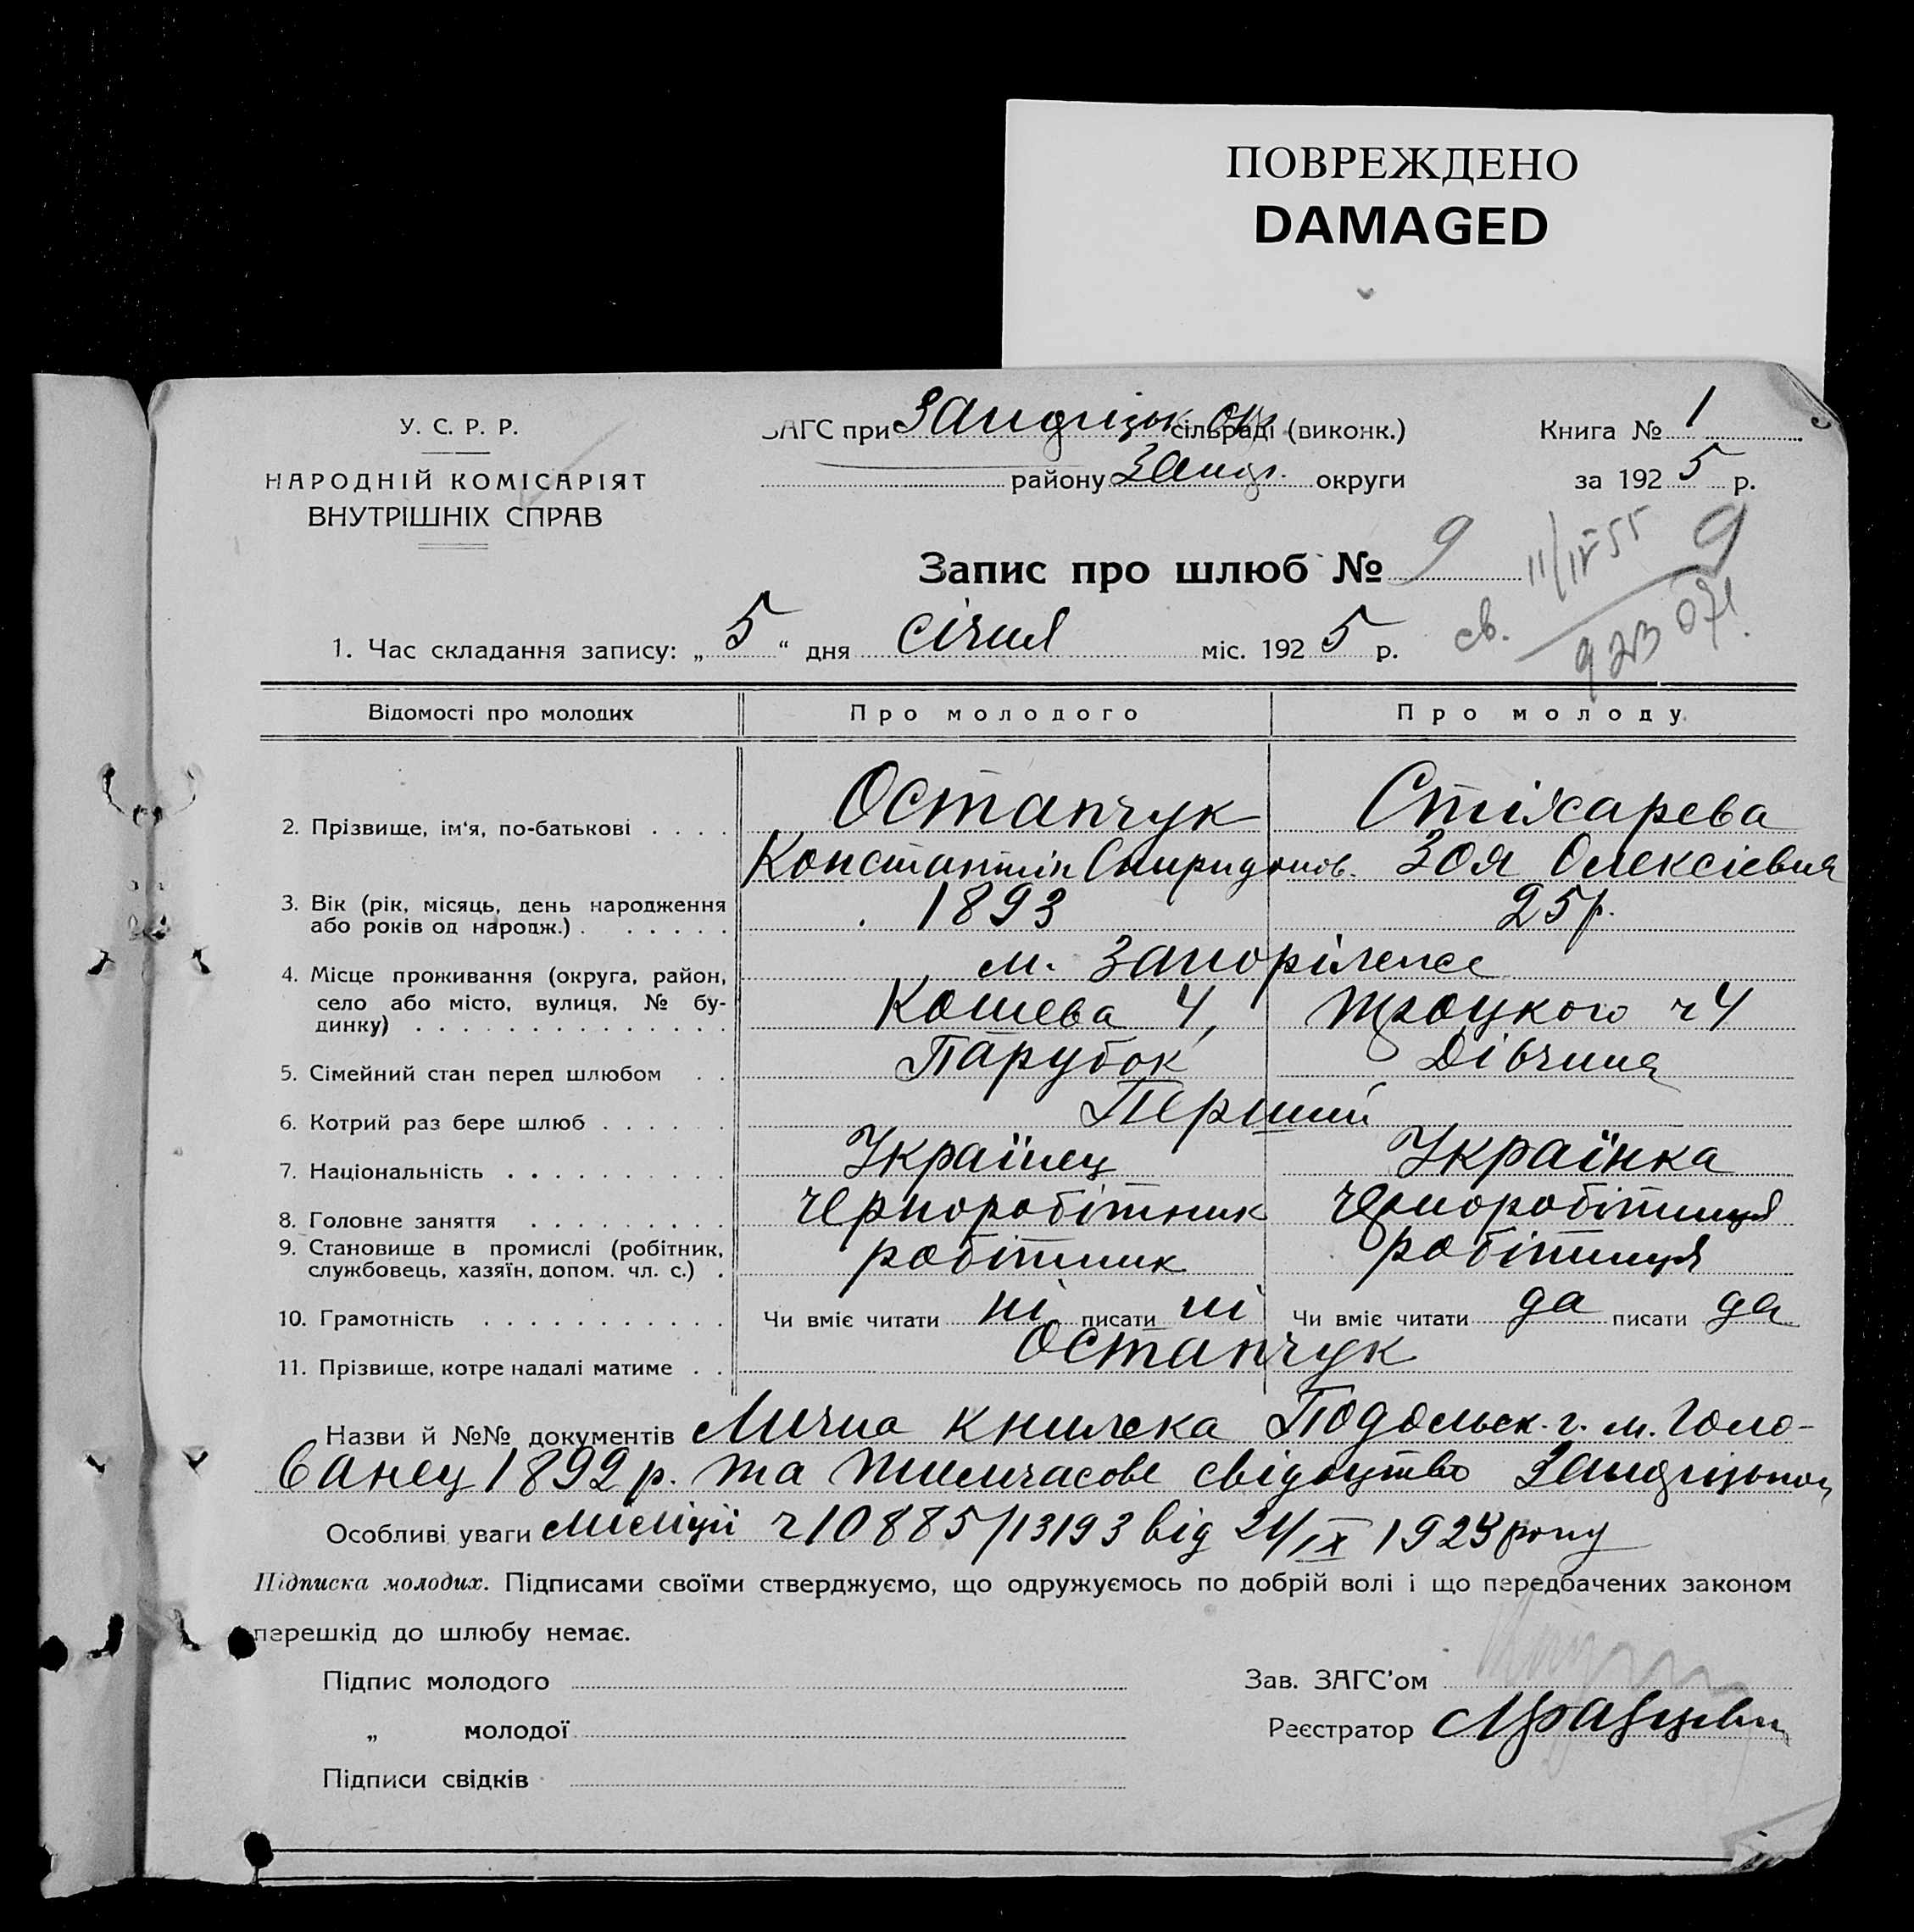 ПОВРЕЖДЕНО
DAMAGED
У. С. Р. Р.
НАРОДНІЙ КОМІСАРІЯТ
ВНУТРІШНІХ СПРАВ
ЗАГС при сільраді (виконк.)
району Запор. округи
Книга № 1
за 1925 р.
Запис про шлюб № 9
11/IV 55 9
св. 923 071
1. Час складання запису: „5“ дня січня міс. 1925 р.
Відомості про молодих Про молодого Про молоду
2. Прізвище, ім'я, по-батькові . . . . Остапчук Стіхарева
Константін Спиридонов. Зоя Олексієвна
3. Вік (рік, місяць, день народження або років од народж.) . . . . . . 1893 25 р.
4. Місце проживання (округа, район, село або місто, вулиця, № будинку) . . . . м. Запоріжжє
Кошева 4, Троцкого ч 4
5. Сімейний стан перед шлюбом . . Парубок Дівчина
6. Котрий раз бере шлюб . . . . . . Перший
7. Національність . . . . . . . . . . Українец Українка
8. Головне заняття . . . . . . . . . черноробітник черноробітниця
9. Становище в промислі (робітник, службовець, хазяїн, допом. чл. с.) . робітник робітниця
10. Грамотність . . . . . . . . . . . Чи вміє читати ні писати ні Чи вміє читати да писати да
11. Прізвище, котре надалі матиме . . Остапчук
Назви й №№ документів Лична книжка Подольск. г. м. Голо-
ванец 1892 р. та тимчасове свідоцтво
Особливі уваги міліції ч 10885/13193 від 24/IX 1923 року
Підписка молодих. Підписами своїми стверджуємо, що одружуємось по добрій волі і що передбачених законом
перешкід до шлюбу немає.
Підпис молодого
„ молодої
Підписи свідків
Зав. ЗАГС'ом
Реєстратор